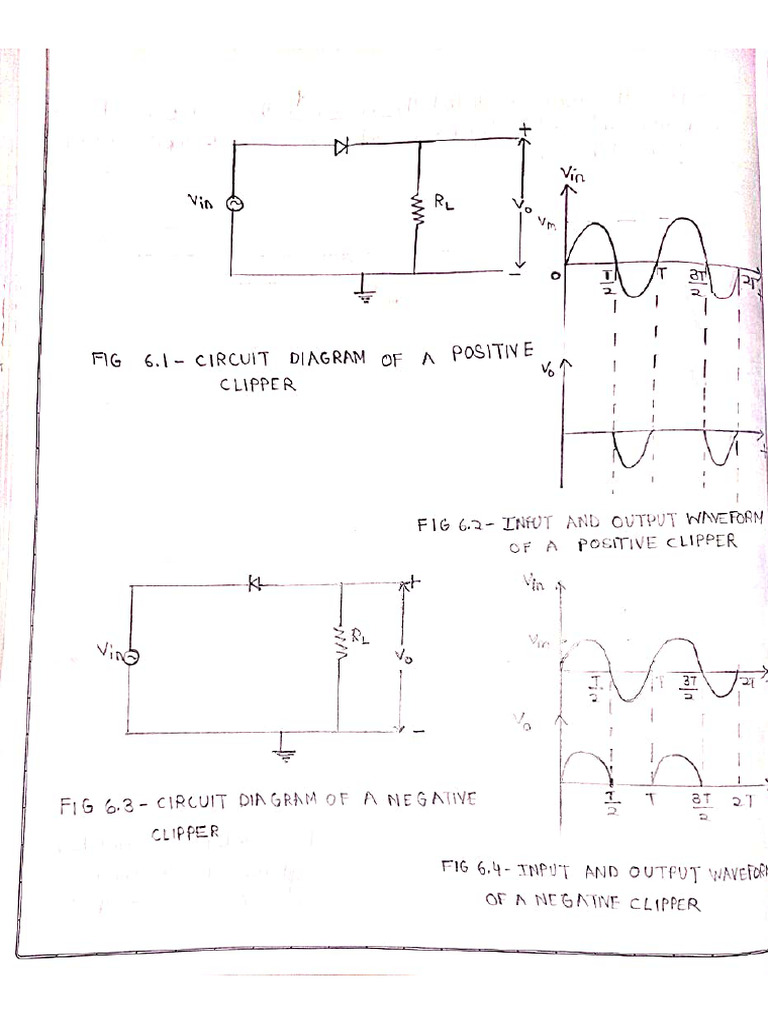 +
Vin
RL
Vo
-
Vin
Vm
0
T/2
T
3T/2
2T
FIG 6.1 - CIRCUIT DIAGRAM OF A POSITIVE
CLIPPER
Vo
FIG 6.2 - INPUT AND OUTPUT WAVEFORM
OF A POSITIVE CLIPPER
+
Vin
RL
Vo
-
Vin
Vin
T/2
T
3T/2
2T
Vo
T/2
T
3T/2
2T
FIG 6.3 - CIRCUIT DIAGRAM OF A NEGATIVE
CLIPPER
FIG 6.4 - INPUT AND OUTPUT WAVEFOR
OF A NEGATIVE CLIPPER